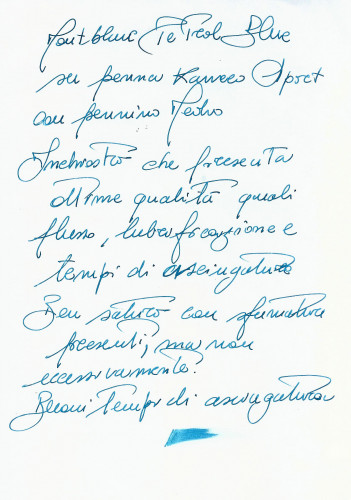 Montblanc Petrol Blue
su penna Kaweco Sport
con pennino Medio
Inchiostro che presenta
ottime qualità quali
flusso, lubrificazione e
tempi di asciugatura
Ben saturo con sfumature
presenti, ma non
eccessivamente.
Buoni Tempi di asciugatura